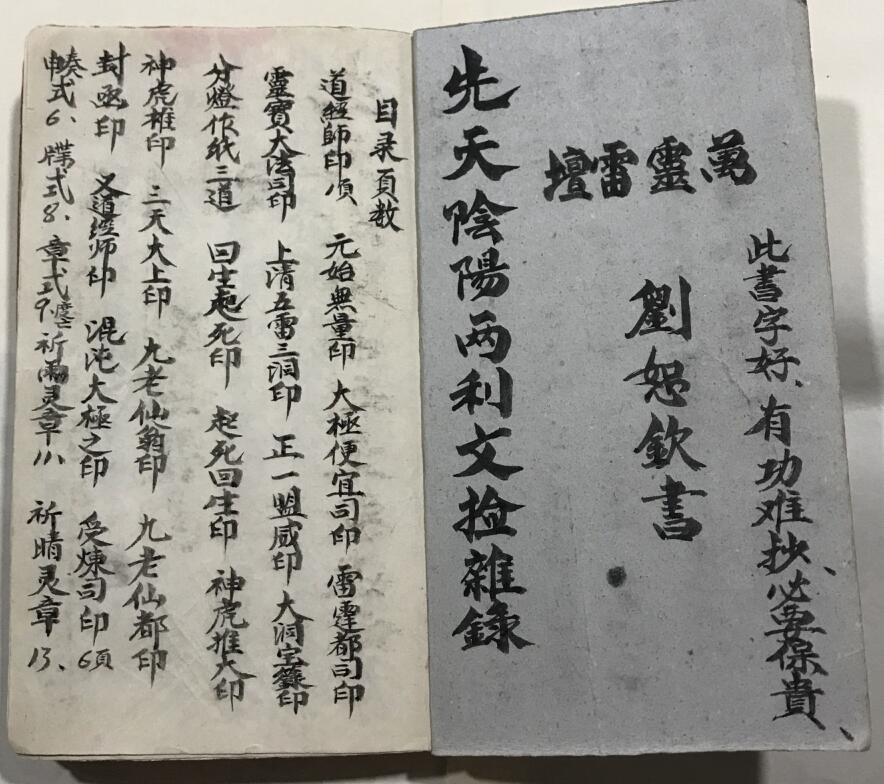 此書字好、有功难抄、必要保貴、
萬靈雷壇
劉恕欽書
先天陰陽两利文捡雜錄
目录頁数
道經師印項 元始無量印 大極便宜司印 雷霆都司印
靈寶大法司印 上清五雷三洞印 正一盟威印 大洞宝籙印
分燈作紙三道 回生起死印 起死回生印 神虎推大印
神虎推印 三天大上印 九老仙翁印 九老仙都印
封函印 又道經师印 混沌大極之印 受煉司印6項
申奏式6、牒式8、章式9、祈雨灵章11、祈晴灵章13、